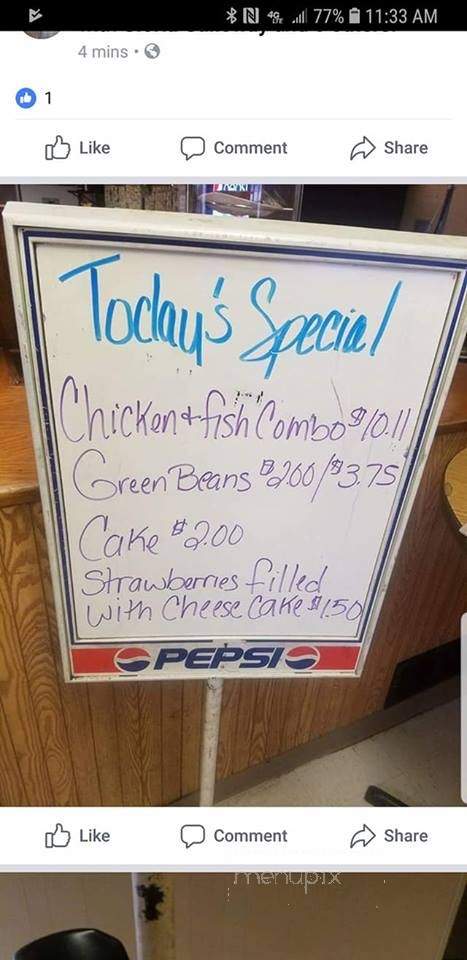 4G LTE 77% 11:33 AM
4 mins
1
Like Comment Share
Today's Special
Chicken + fish Combo $10.11
Green Beans $2.00/$3.75
Cake $2.00
Strawberries filled
with Cheese Cake $1.50
PEPSI
Like Comment Share
menupix